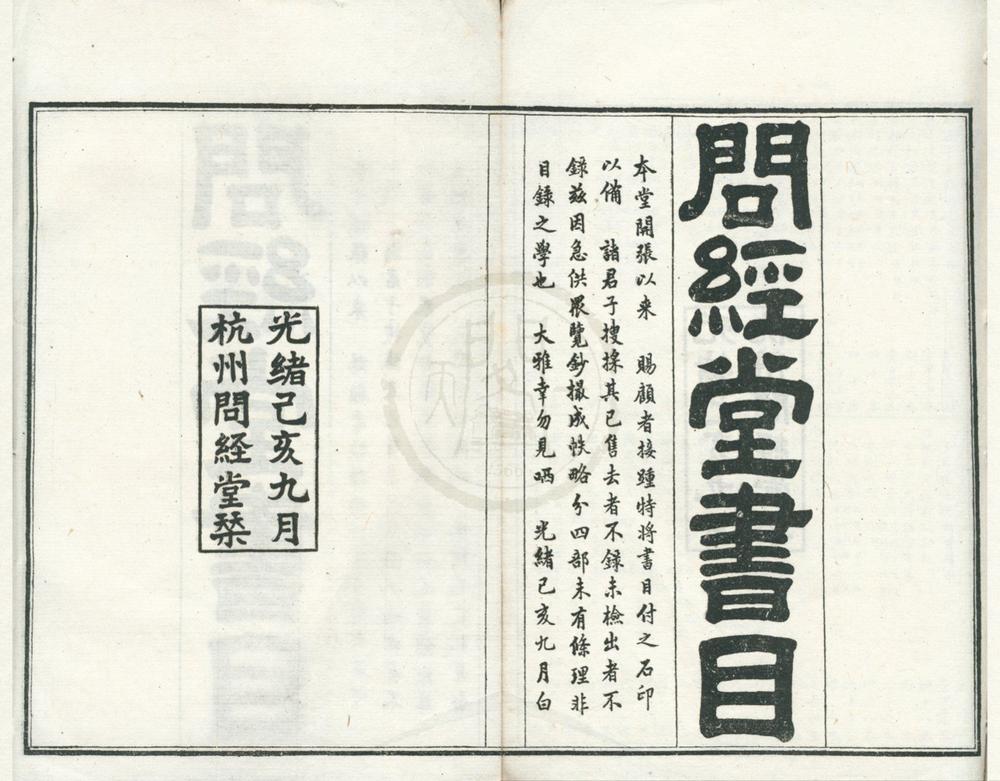 問經堂書目
本堂開張以来　賜顧者接踵特將書目付之石印
以備　諸君子搜採其已售去者不録未檢出者不
録茲因急供眾覽鈔撮成帙略分四部未有條理非
目録之學也　大雅幸勿見哂　光緒己亥九月白
光緒己亥九月
杭州問経堂栞